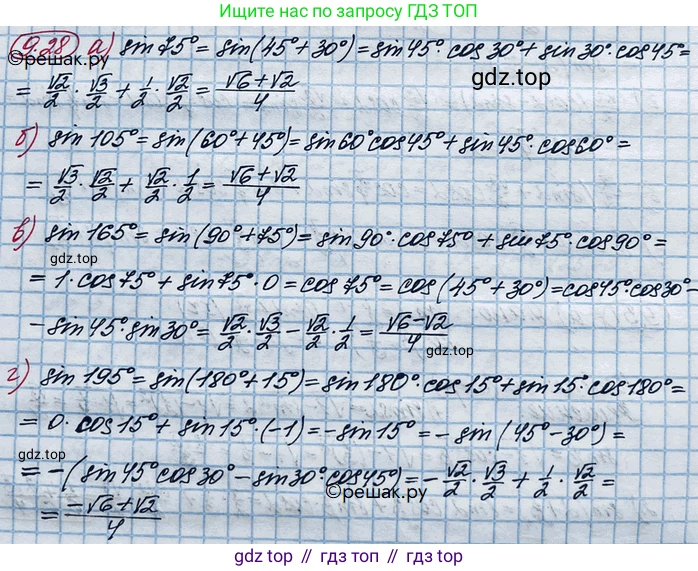 Больше решебников по запросу ГДЗ ТОП
9.28 а) sin 75° = sin(45° + 30°) = sin 45° · cos 30° + sin 30° · cos 45° =
©решак.ру
gdz.top
= √2/2 · √3/2 + 1/2 · √2/2 = (√6 + √2)/4
б) sin 105° = sin(60° + 45°) = sin 60° cos 45° + sin 45° · cos 60° =
= √3/2 · √2/2 + √2/2 · 1/2 = (√6 + √2)/4
в) sin 165° = sin(90° + 75°) = sin 90° · cos 75° + sin 75° · cos 90° =
gdz.top
= 1 · cos 75° + sin 75° · 0 = cos 75° = cos(45° + 30°) = cos 45° · cos 30° -
- sin 45° · sin 30° = √2/2 · √3/2 - √2/2 · 1/2 = (√6 - √2)/4
gdz.top
г) sin 195° = sin(180° + 15°) = sin 180° · cos 15° + sin 15° · cos 180° =
= 0 · cos 15° + sin 15° · (-1) = - sin 15° = - sin(45° - 30°) =
gdz.top
= -(sin 45° cos 30° - sin 30° · cos 45°) = - √2/2 · √3/2 + 1/2 · √2/2 =
©решак.ру
= (-√6 + √2)/4
gdz top // гдз топ // gdz.top // гдз топ